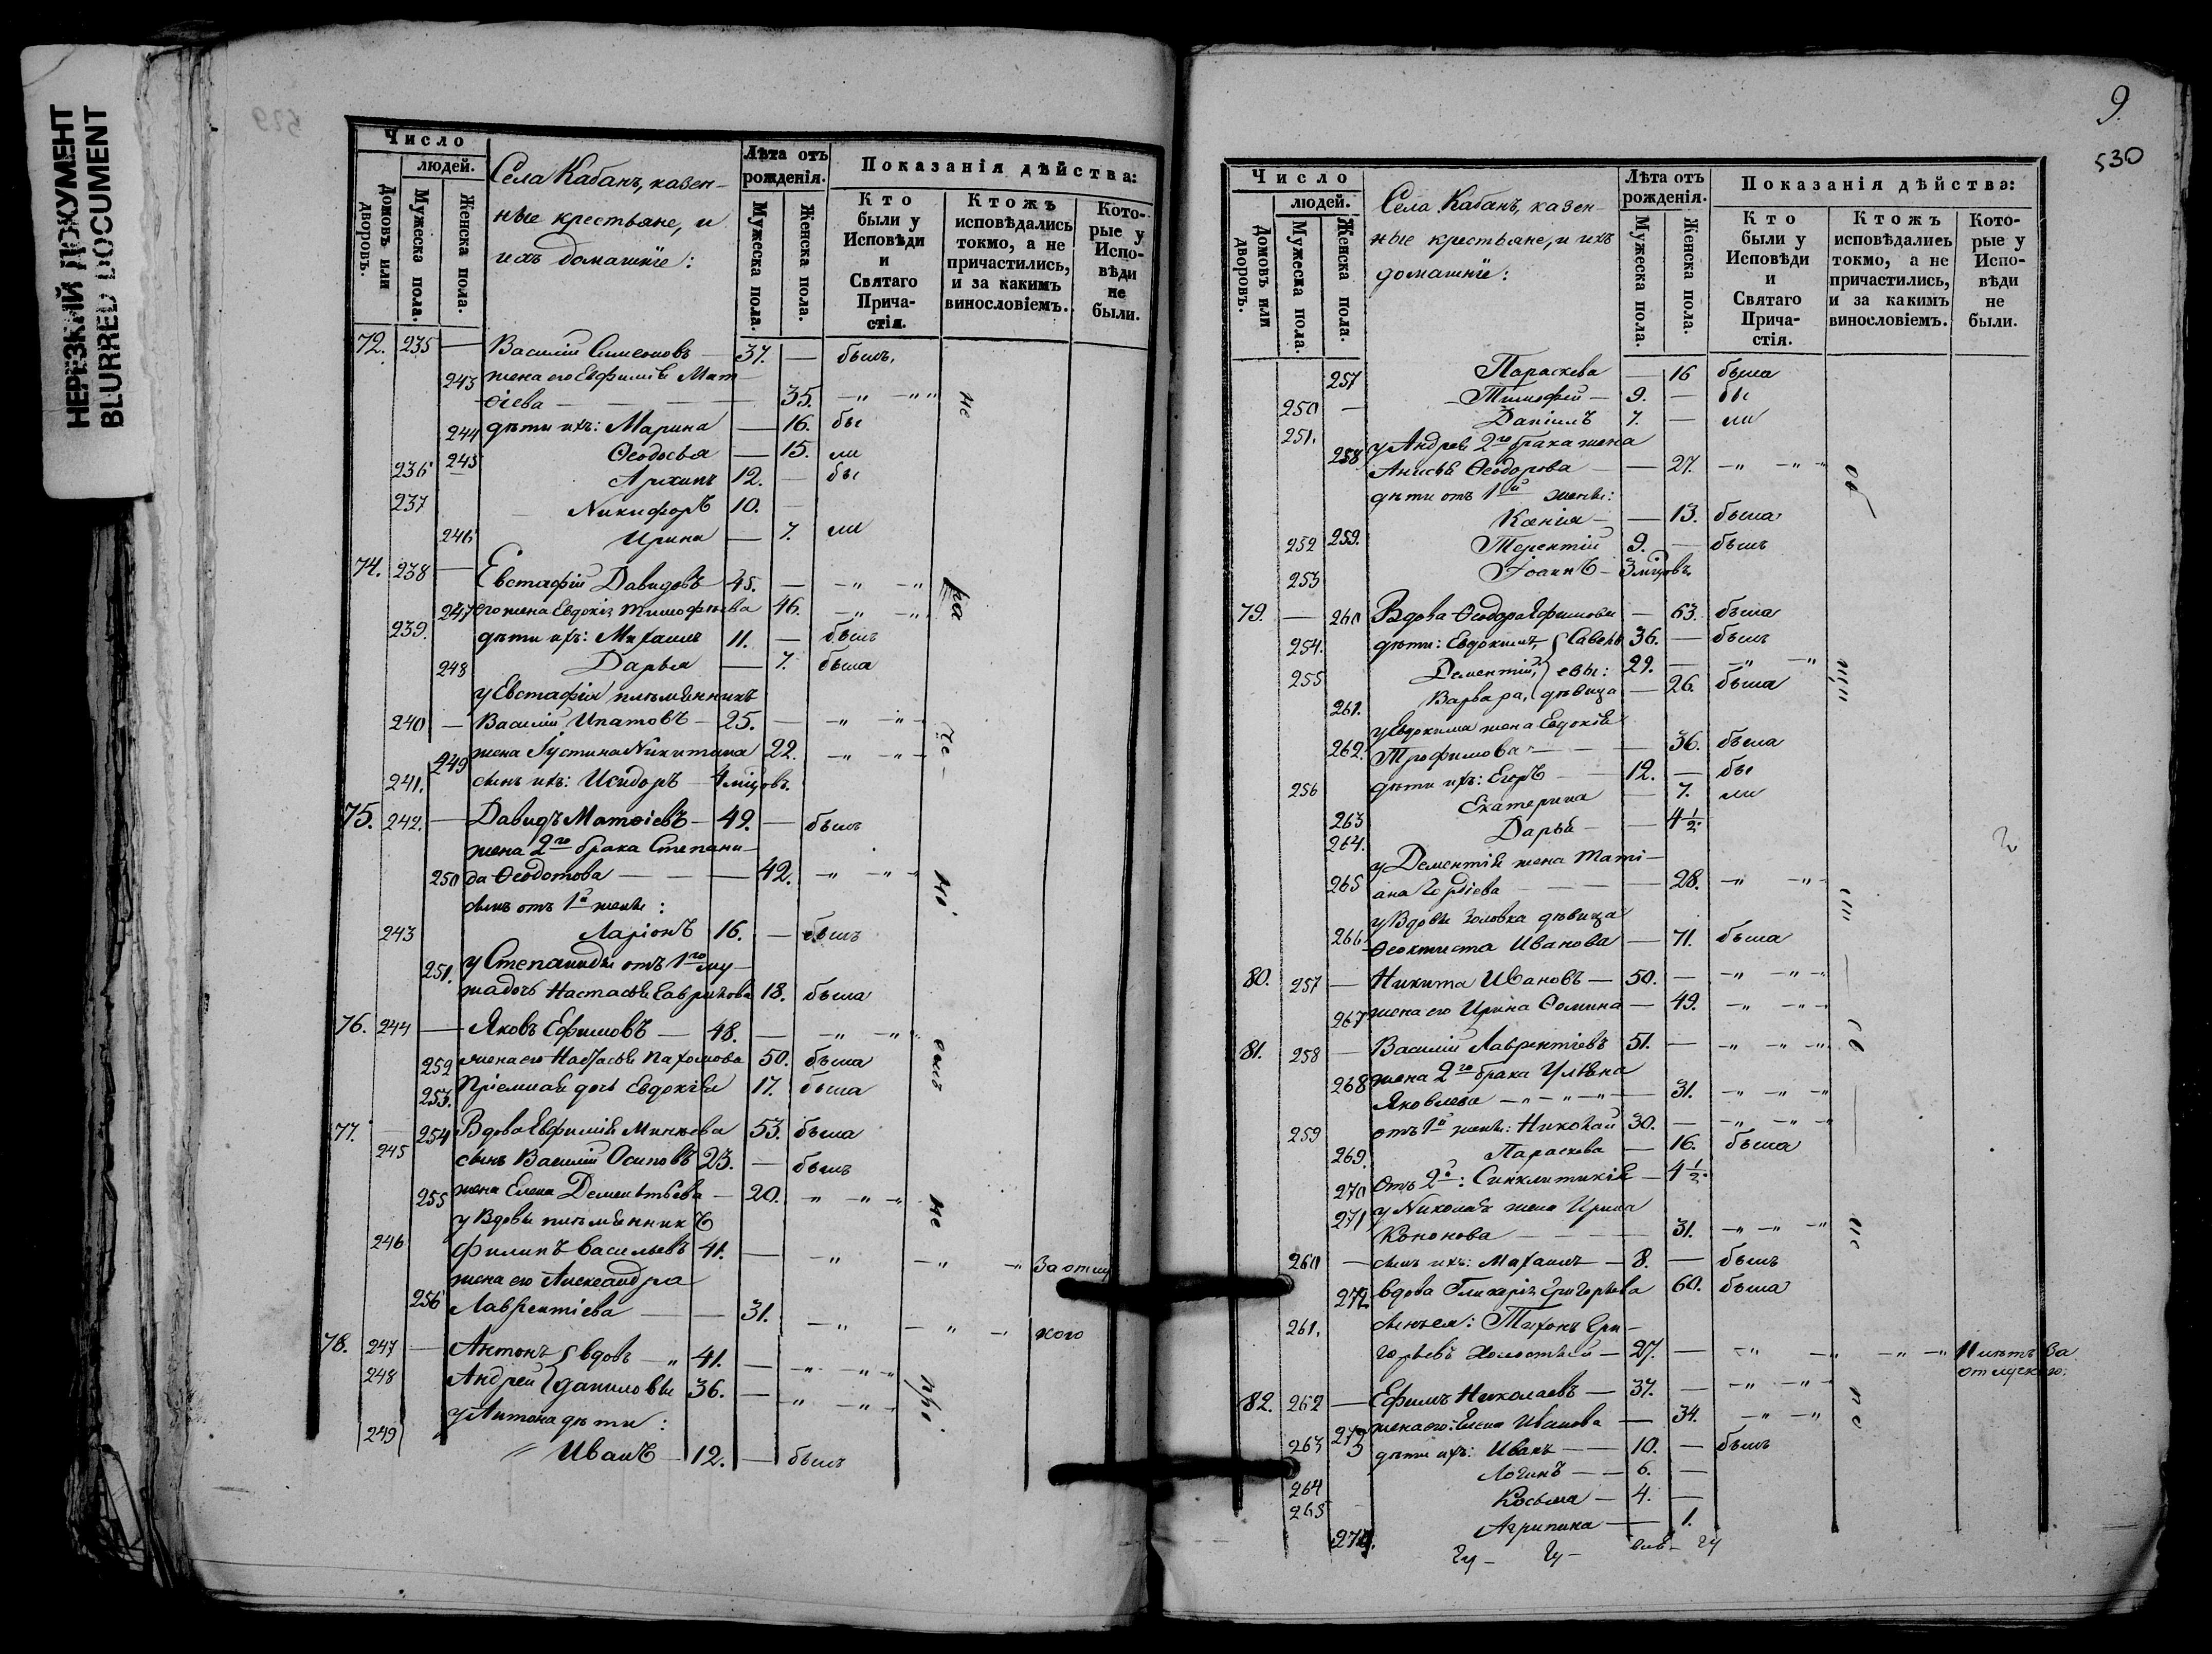 НЕРЕЗКИЙ ДОКУМЕНТ
BLURRED DOCUMENT
529
Число
людей.
Домовъ или дворовъ.
Мужеска пола.
Женска пола.
Села Кабанъ, казен-
ные крестьяне, и
ихъ домашніе:
Лѣта отъ рожденія.
Мужеска пола.
Женска пола.
Показанія дѣйства:
Кто были у Исповѣди и Святаго Прича-стія.
Ктожъ исповѣдались токмо, а не причастились, и за какимъ винословіемъ.
Кото-рые у Испо-вѣди не были.
72. 235 — Василій Симеоновъ — 37. — былъ,
243 жена его Евфимія Мат-
ѳіева — 35. —„ —„
244 дѣти ихъ: Марина — 16. бы
245 Ѳеодосья — 15. ли
236 Архипъ 12. — бы
237 Никифоръ 10. —
246 Ирина — 7. ли
74. 238 — Евстафій Давидовъ 45. — —„ —„
247 его жена Евдокія Тимофѣева 46. —„ —„
239. дѣти ихъ: Михаилъ 11. — былъ
248 Дарья — 7. была
у Евстафія племянникъ
240 — Василій Ипатовъ — 25. — —„ —„
249 жена Іустина Никитина 22. —„ —„
241. сынъ ихъ: Исидоръ — 4 мѣцовъ.
75. 242. — Давидъ Матѳіевъ — 49. — былъ
жена 2го брака Степани-
250 да Ѳеодотова — 42. —„ —„
сынъ отъ 1й жены:
243 Ларіонъ 16. — былъ
251. у Степаниды отъ 1го му-
жа дочь Настасья Гаврилова 18. была
76. 244 — Яковъ Ефимовъ — 48. — —„ —„
252 жена его Настасья Пахомова 50. была
253. Пріемная дочь Евдокія 17. была
77. — 254 Вдова Евфимія Минѣева 53. была
245 сынъ Василій Осиповъ 23. — былъ
255 жена Елена Дементьева — 20. „ —„
у Вдовы племянникъ
246 Филипъ Васильевъ 41. — —„ —„ —„ За отлуч
жена его Александра
256 Лаврентіева — 31. —„ —„ — кою
78. 247 — Антонъ вдовъ —„ 41. — —„ —„
248 Андрей Даниловы 36. — —„ —„
у Антона дѣти:
249 Иванъ — 12. — былъ
9.
530
Число
людей.
Домовъ или дворовъ.
Мужеска пола.
Женска пола.
Села Кабанъ, казен-
ные крестьяне, и ихъ
домашніе:
Лѣта отъ рожденія.
Мужеска пола.
Женска пола.
Показанія дѣйства:
Кто были у Исповѣди и Святаго Прича-стія.
Ктожъ исповѣдались токмо, а не причастились, и за какимъ винословіемъ.
Кото-рые у Испо-вѣди не были.
257 Параскева — 16 была
250 — Тимофей — 9. — бы
251. Даніилъ 7. — ли
258 у Андрея 2го брака жена
Анисья Ѳеодорова — 27. —„ —„
дѣти отъ 1ой жены:
259. Ксенія — 13. была
252 Терентій 9. — былъ
253 Іоаннъ — 3 мѣцовъ.
79. — 260 Вдова Ѳеодора Ефимова — 63. была
254. дѣти: Евдокимъ, Савель 36. — былъ
255 Дементій, евы: 29. — —„ —„
261. Варвара, дѣвица — 26. была
у Евдокима жена Евдокія
262. Трофимова — 36. была
256 дѣти ихъ: Егоръ — 12. — бы
263 Екатерина — 7. ли
264. Дарья — 4 1/2.
у Дементія жена Тати-
265 ана Гордіева — 28. —„ —„
у Вдовы золовка дѣвица
266 Ѳеоктиста Иванова — 71. была
80. 257 — Никита Ивановъ — 50. — —„ —„
267 жена его Ирина Ѳомина — 49. —„ —„
81. 258 — Василій Лаврентіевъ 51. — —„ —„
268 жена 2го брака Уліяна
Яковлева —„—„—„— 31. —„ —„
259 отъ 1й жены: Николай 30. — —„ —„
269. Параскева — 16. была
270 отъ 2й: Синклитикія — 4 1/2.
271 у Николая жена Ирина
Кононова — 31. —„ —„
260 — сынъ ихъ: Михаилъ — 8. — былъ
272 вдова Гликерія Григорьева 60. была
261. сынъ ея: Тихонъ Гри-
горьевъ холостый — 27. — —„ —„ —„ Нѣтъ За
отлучкою.
82. 262 — Ефимъ Николаевъ — 37. — —„ —„
273 жена его: Елена Иванова — 34. —„ —„
263 дѣти ихъ: Иванъ — 10. — былъ
264 Логинъ — 6. —
265 Косьма — 4. —
274. Агрипина — 1.